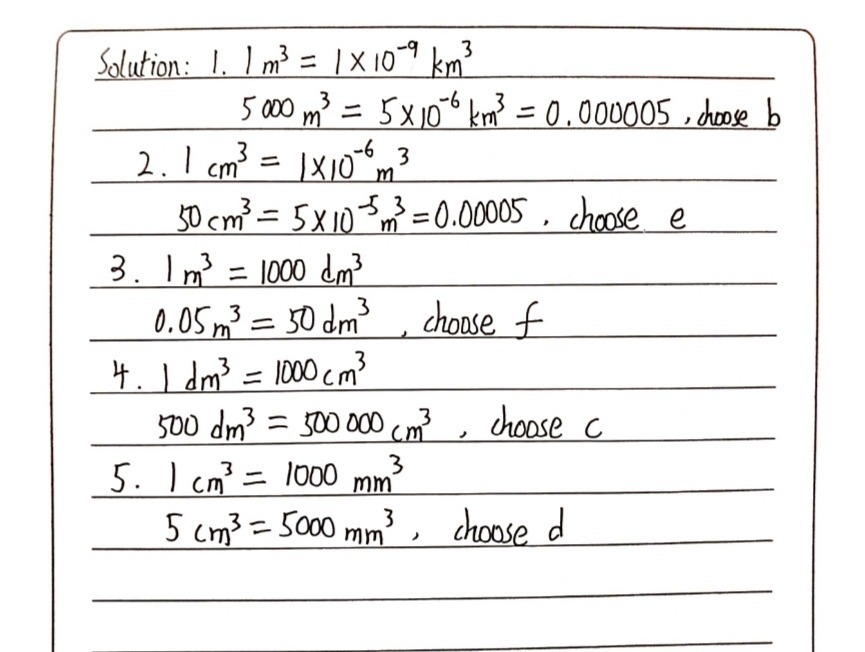 Solution: 1. 1 m³ = 1 × 10⁻⁹ km³
5000 m³ = 5 × 10⁻⁶ km³ = 0.000005 , choose b
2. 1 cm³ = 1×10⁻⁶ m³
50 cm³ = 5 × 10⁻⁵ m³ = 0.00005 . choose e
3. 1 m³ = 1000 dm³
0.05 m³ = 50 dm³ , choose f
4. 1 dm³ = 1000 cm³
500 dm³ = 500 000 cm³ , choose c
5. 1 cm³ = 1000 mm³
5 cm³ = 5000 mm³ , choose d